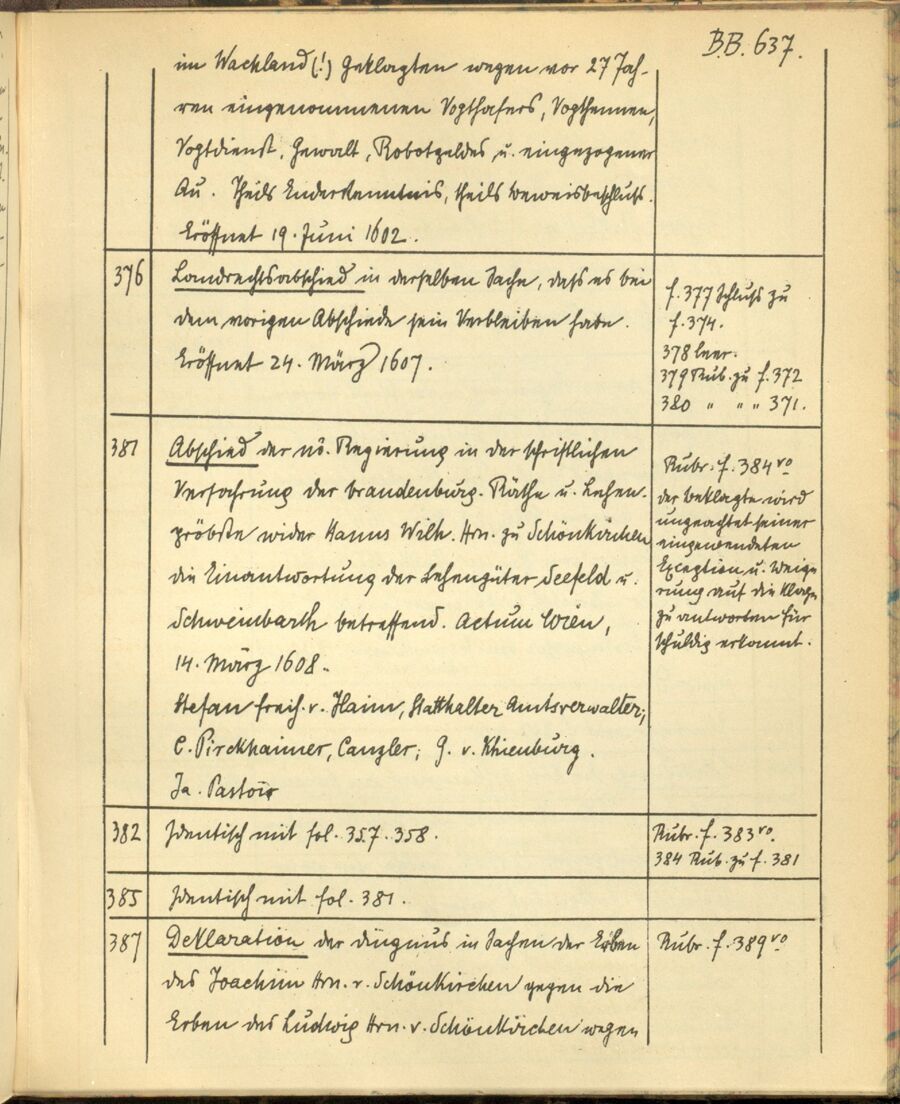 B.B. 637.
im Wachland (!) Geklagten wegen vor 27 Jah-
ren eingenommenen Vogthafers, Vogthennen,
Vogtdienst, Gewalt, Robotgeldes u. eingezogener
Au. Theils Enderkenntnis, theils Beweisbeschluss.
Eröffnet 19. Juni 1602.
376 Landrechtsabschied in derselben Sache, dass es bei
dem vorigen Abschiede sein Verbleiben habe.
Eröffnet 24. März 1607.
f. 377 Schluss zu
f. 374.
378 leer.
379 Rub. zu f. 372
380 " " " 371.
381 Abschied der nö. Regierung in der schriftlichen
Verfahrung der brandenburg. Räthe u. Lehen-
pröbste wider Hanns Wilh. Hrn. zu Schönkirchen
die Einantwortung der Lehengüter Seefeld u.
Schweinbarth betreffend. Actum Wien,
14. März 1608.
Stefan freih. v. Haim, Statthalter Amtsverwalter;
C. Pirckhaimer, Canzler; G. v. Khienburg.
Ja. Pastoir
Rubr. f. 384 vo
der Beklagte wird
ungeachtet seiner
eingewendeten
Exception u. Weige
rung auf die Klage
zu antworten für
schuldig erkannt.
382 Identisch mit fol. 357. 358.
Rubr. f. 383 vo.
384 Rub. zu f. 381
385 Identisch mit fol. 381.
387 Deklaration der dingnus in Sachen der Erben
des Joachim Hrn. v. Schönkirchen gegen die
Erben des Ludwig Hrn. v. Schönkirchen wegen
Rubr. f. 389 vo